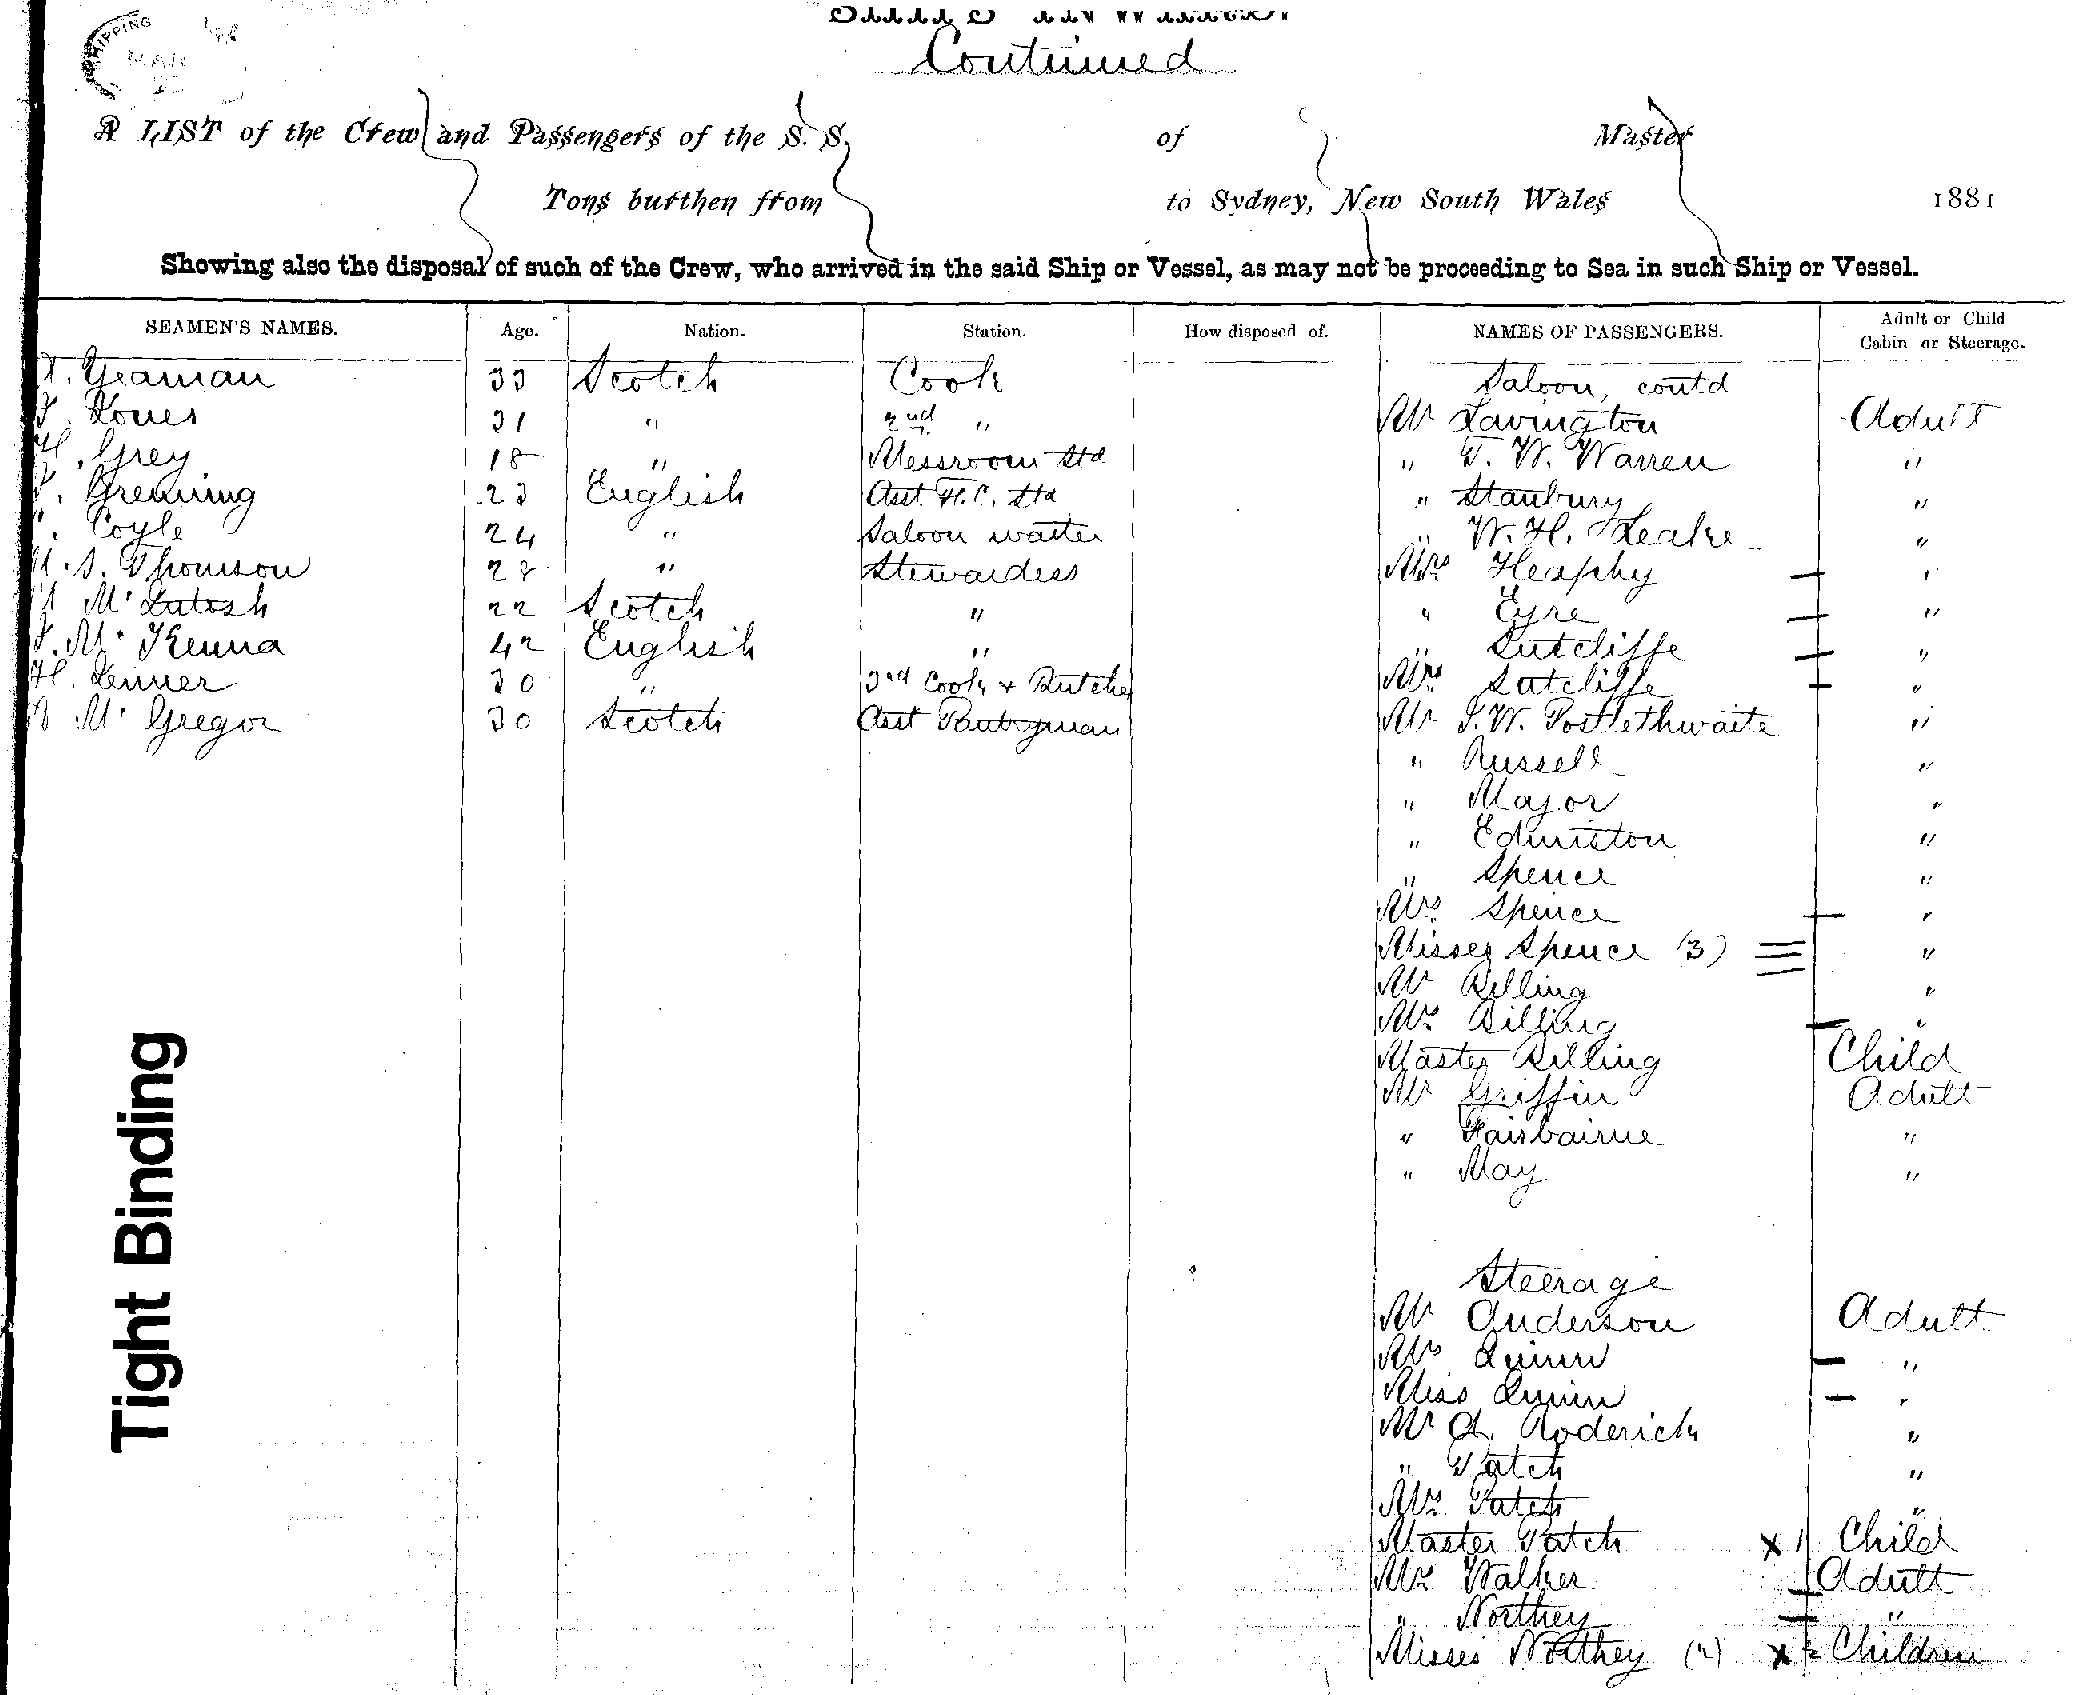 SHIPPING
Continued
A LIST of the Crew and Passengers of the S. S. of Master
Tons burthen from to Sydney, New South Wales 1881
Showing also the disposal of such of the Crew, who arrived in the said Ship or Vessel, as may not be proceeding to Sea in such Ship or Vessel.
SEAMEN'S NAMES. Age. Nation. Station. How disposed of. NAMES OF PASSENGERS. Adult or Child Cabin or Steerage.
Yeaman 33 Scotch Cook Saloon, contd
Jones 31 " 2nd " Mr Lavington Adult
H. Grey 18 " Messroom Std " T. W. Warren "
Grenning 23 English Asst F.C. Std " Stanbury "
Coyle 24 " Saloon waiter " W. H. Leake "
S. Thomson 28 " Stewardess Mrs Heaphy "
Mc Intosh 22 Scotch " " Eyre "
Mc Kenna 42 English " " Sutcliffe "
H. Lenner 30 " 3rd Cook & Butcher Mrs Sutcliffe "
Mc Gregor 30 Scotch Asst Pantryman Mr T. W. Postlethwaite "
" Russell "
" Major "
" Edmiston "
" Spence "
Mrs Spence "
Misses Spence (3) "
Mr Billing "
Mrs Billing "
Master Billing Child
Mr Griffin Adult
" Fairbairne "
" May "
Steerage
Mr Anderson Adult
Mrs Quinn "
Miss Quinn "
Mr A. Roderick "
" Patch "
Mrs Patch "
Master Patch x 1 Child
Mrs Walker Adult
" Northey "
Misses Northey (2) x 2 Children
Tight Binding